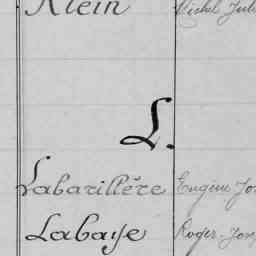 Klein Michel Jul
L.
Labarillère Eugène Jo
Labaye Roger-Jos